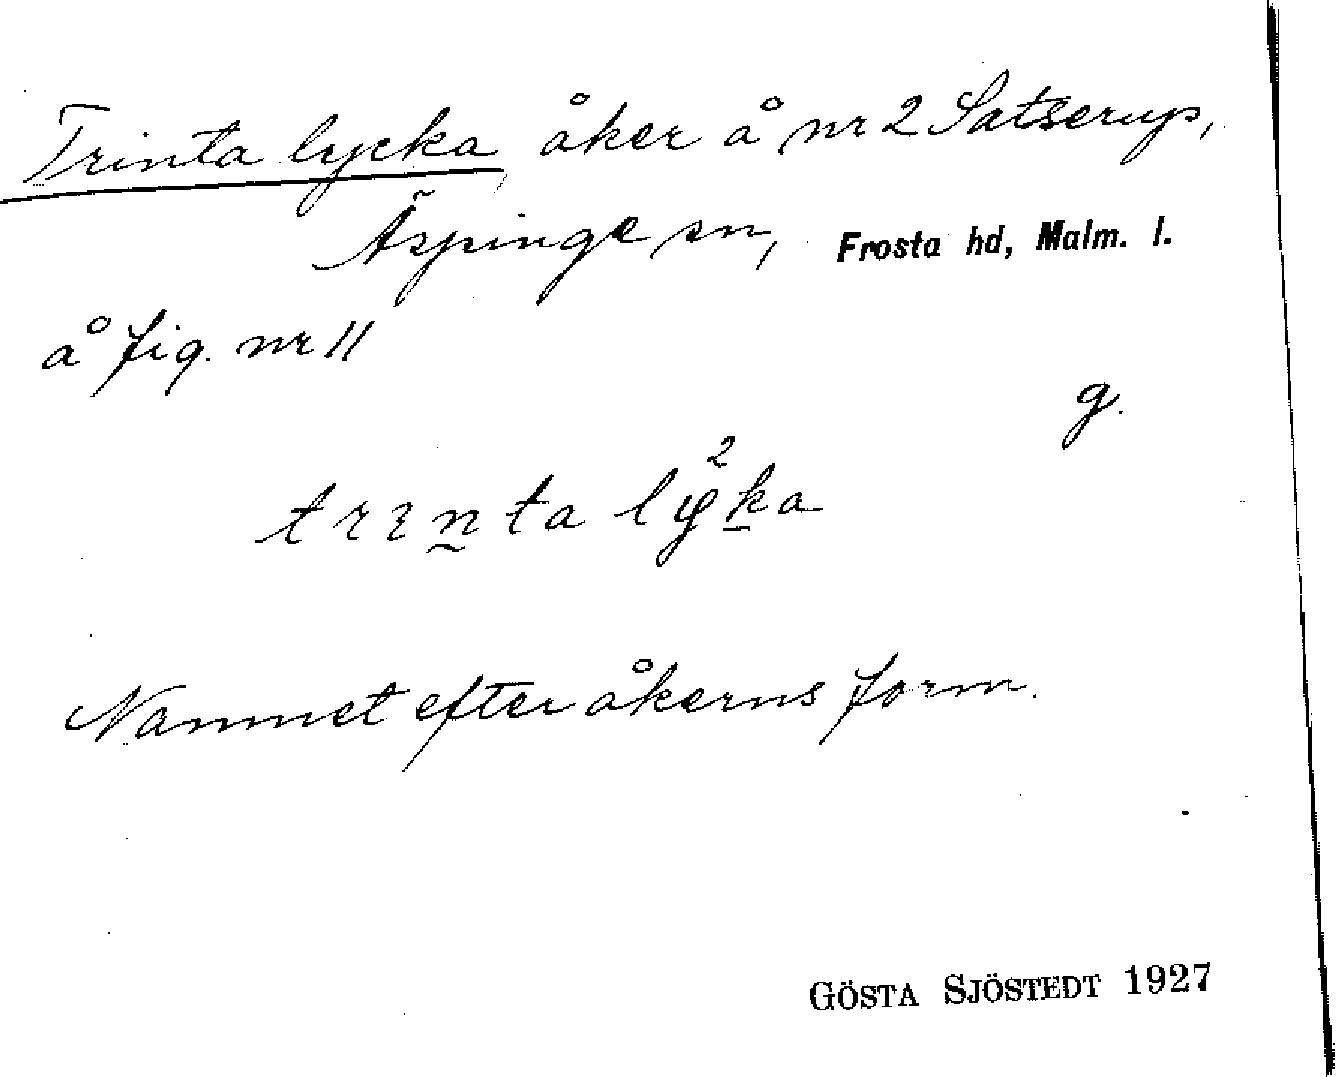 Trinta lycka, åker å nr 2 Satserup,
Äspinge sn, Frosta hd, Malm. l.
å fig. nr 11
g.
trinta lyka
2
Namnet efter åkerns form.
GÖSTA SJÖSTEDT 1927